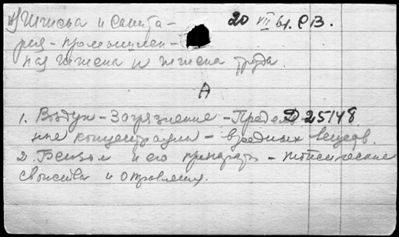 Гигиена и Санита- 20 VII 61. РВ.
рия - промышлен-
ная гигиена и гигиена труда.
А
1. Воздух - Загрязнение - Предель- D 25148
ные концентрации - вредных веществ.
2. Бензол и его препараты - токсические
свойства и отравления.